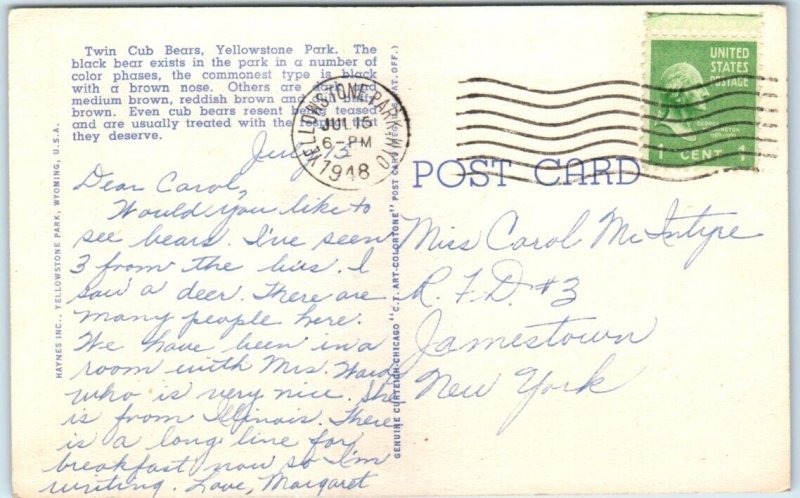 Twin Cub Bears, Yellowstone Park. The
black bear exists in the park in a number of
color phases, the commonest type is black
with a brown nose. Others are dark and
medium brown, reddish brown and light
brown. Even cub bears resent being teased
and are usually treated with the respect that
they deserve.
HAYNES INC., YELLOWSTONE PARK, WYOMING, U.S.A.
GENUINE CURTEICH-CHICAGO "C.T. ART-COLORTONE" POST CARD (REG. U.S. PAT. OFF.)
YELLOWSTONE PARK WYO
JUL 15
6-PM
1948
UNITED
STATES
POSTAGE
1 CENT 1
POST CARD
July 13
Dear Carol,
Would you like to
see bears. I've seen
3 from the bus. I
saw a deer. There are
many people here.
We have been in a
room with Mrs. Ward
who is very nice. She
is from Illinois. There
is a long line for
breakfast now so I'm
writing. Love, Margaret
Miss Carol McIntyre
R.F.D. #3
Jamestown
New York